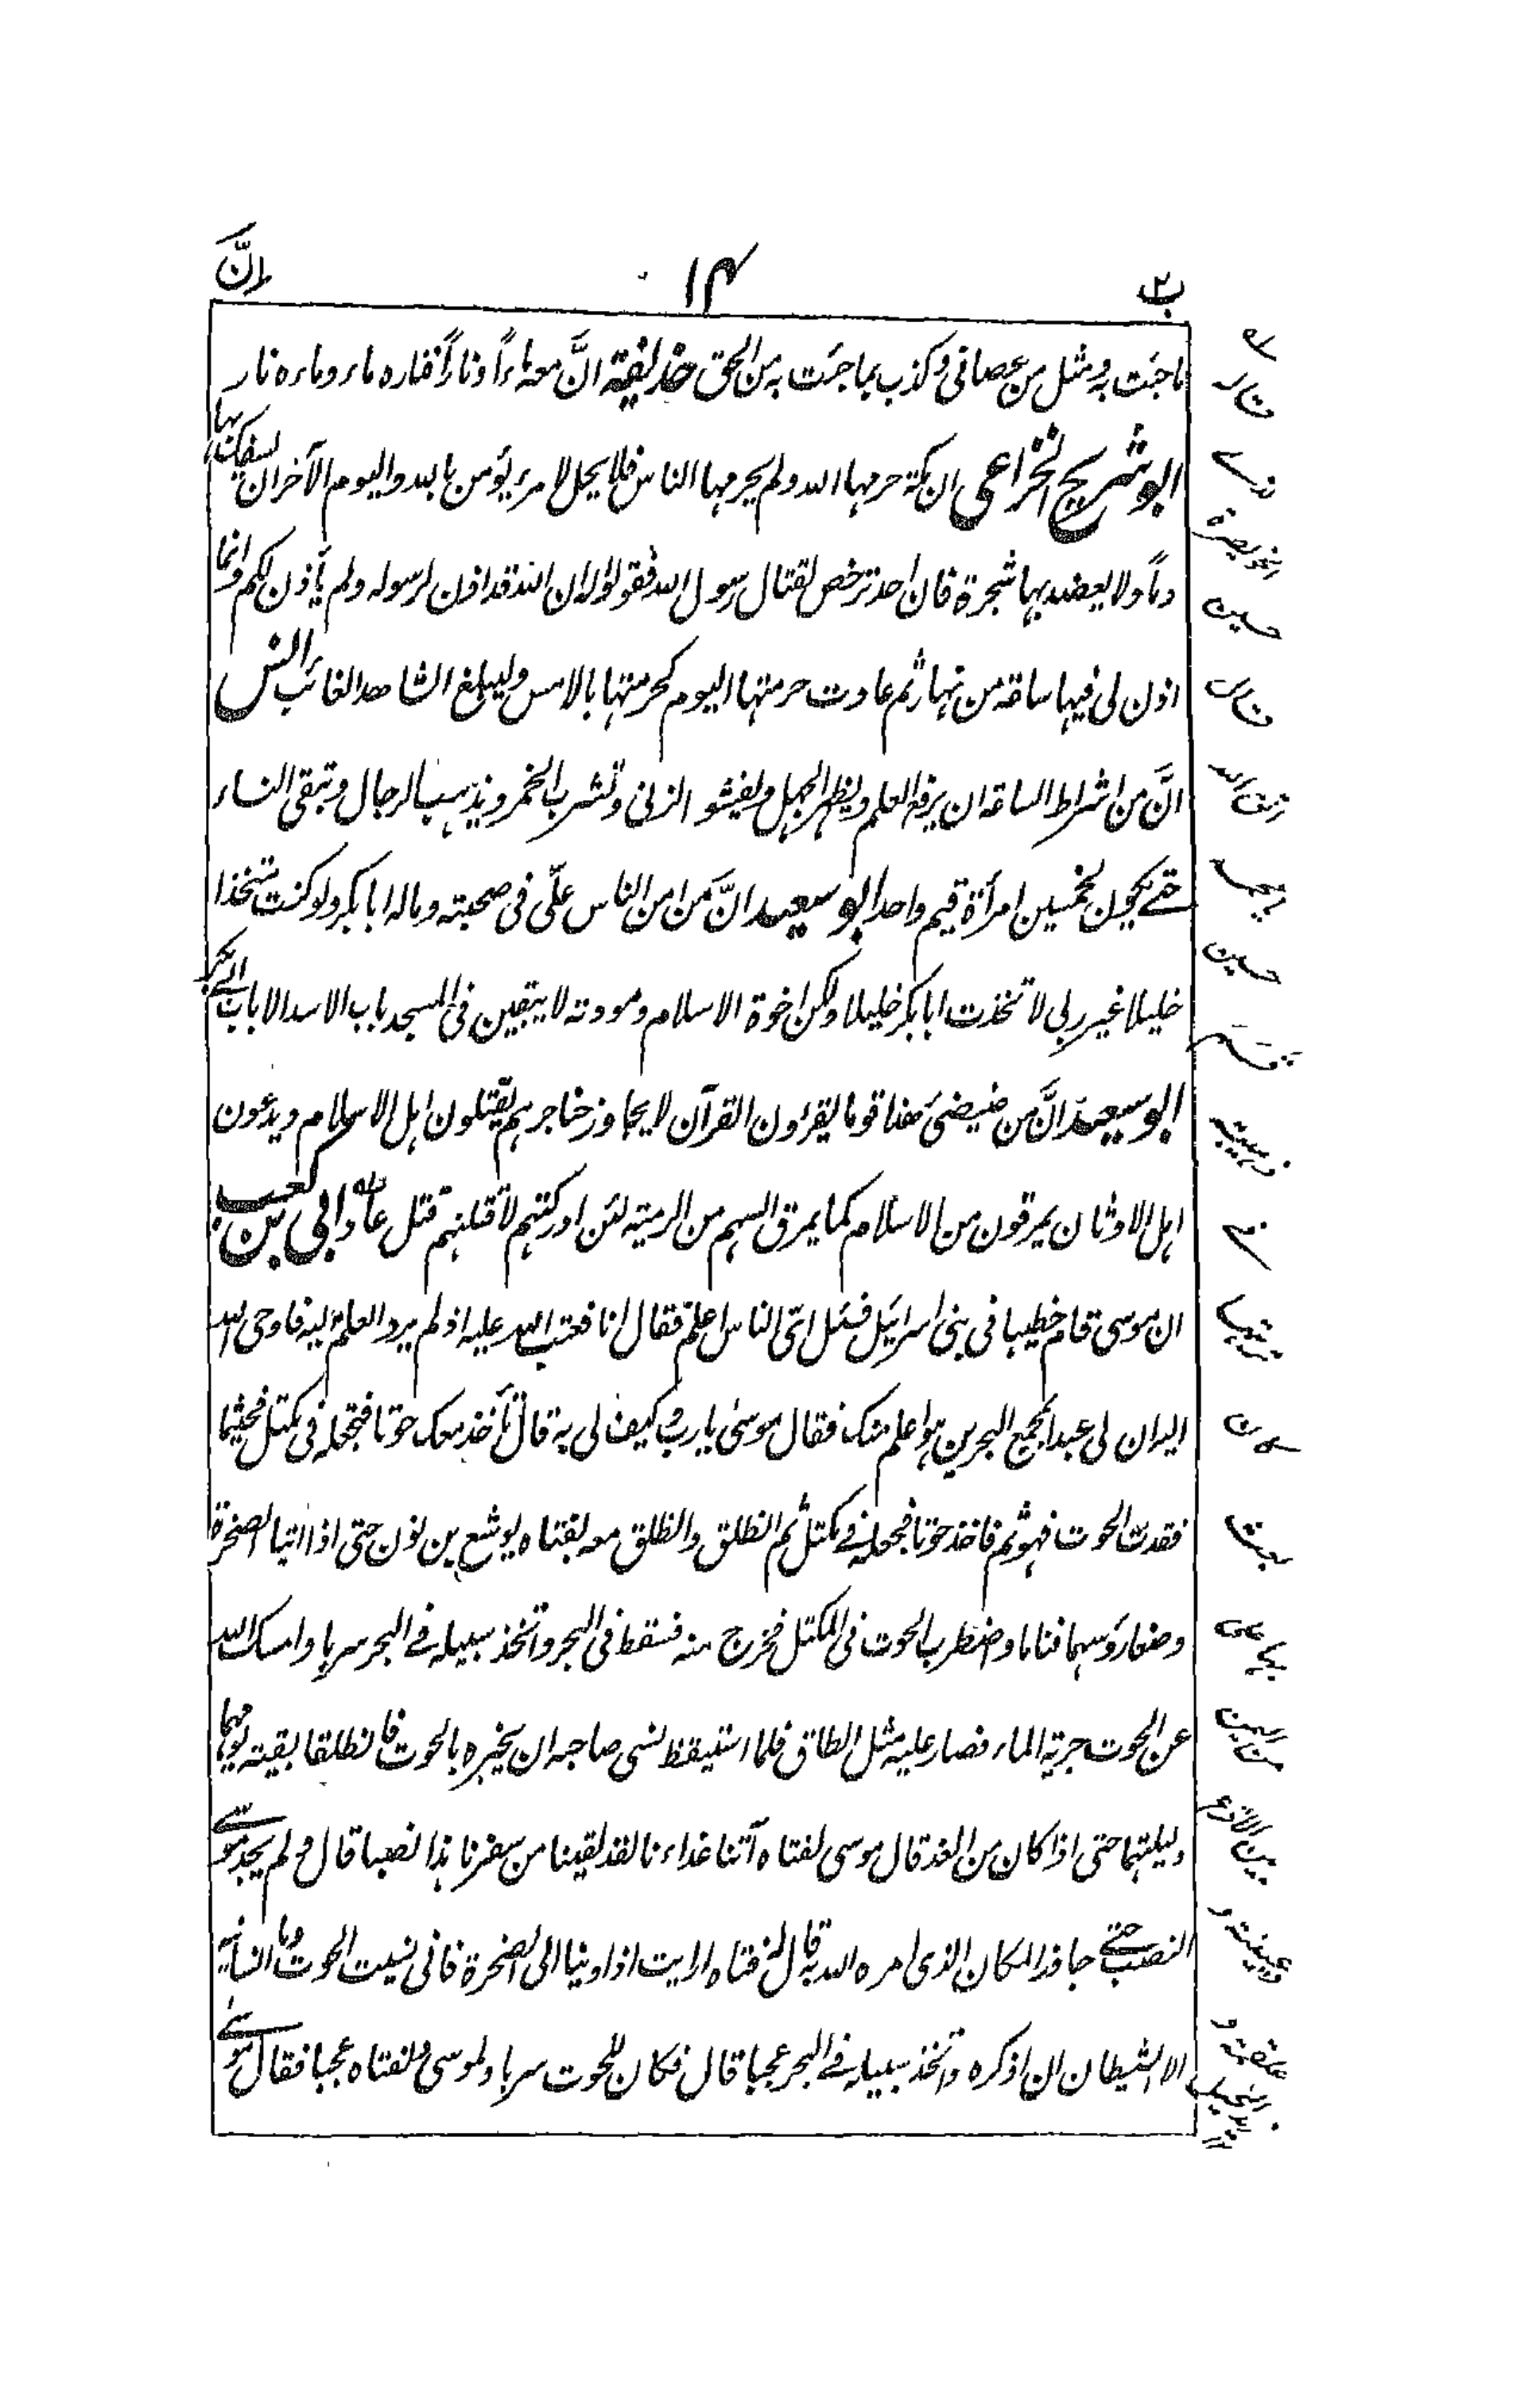 ب۲ ۱۴ اِنَّ
ما جئت به ومثل من عصانی وکذب بما جئت به من الحق حذیفة انَّ معه ماءً وناراً فناره ماء وماءه نار
ابو شریح الخزاعی ان مکة حرمها الله ولم یحرمها الناس فلا یحل لامرء یؤمن بالله والیوم الآخر ان یسفک بها
دماً ولا یعضد بها شجرة فان احد ترخص لقتال رسول الله فقولوا له ان الله قد اذن لرسوله ولم یأذن لکم وانما
اذن لی فیها ساعة من نهار ثم عادت حرمتها الیوم کحرمتها بالامس ولیبلغ الشاهد الغائب انس
انَّ من اشراط الساعة ان یرفع العلم ویظهر الجهل ویفشو الزنی وتشرب الخمر ویذهب الرجال وتبقی النساء
حتے یکون لخمسین امرأة قیم واحد ابو سعید انَّ من امن الناس علَّی فی صحبته وماله ابا بکر ولو کنت متخذا
خلیلا غیر ربی لاتخذت ابا بکر خلیلا ولکن اخوة الاسلام ومودته لا یبقین فی المسجد باب الا سد الا باب ابی بکر
ابو سعید انَّ من ضیضئ هذا قوما یقرؤن القرآن لا یجاوز حناجرهم یقتلون اهل الاسلام ویدعون
اهل الاوثان یمرقون من الاسلام کما یمرق السهم من الرمیة لئن ادرکتهم لاقتلنهم قتل عاد ابی بن کعب
ان موسی قام خطیبا فی بنی اسرائیل فسئل ای الناس اعلم فقال انا فعتب الله علیه اذ لم یرد العلم الیه فاوحی الله
الیه ان لی عبدا بمجمع البحرین هو اعلم منک فقال موسی یا رب وکیف لی به قال تأخذ معک حوتا فتجعله فی مکتل فحیثما
فقدت الحوت فهو ثم فاخذ حوتا فجعله فے مکتل ثم انطلق وانطلق معه بفتاه یوشع بن نون حتی اذا اتیا الصخرة
وضعا رؤسهما فناما واضطرب الحوت فی المکتل فخرج منه فسقط فی البحر واتخذ سبیله فے البحر سربا وامسک الله
عن الحوت جریة الماء فصار علیه مثل الطاق فلما استیقظ نسی صاحبه ان یخبره بالحوت فانطلقا بقیة یومهما
ولیلتهما حتی اذا کان من الغد قال موسی لفتاه آتنا غداءنا لقد لقینا من سفرنا هذا نصبا قال ولم یجد موسے
النصب حتے جاوز المکان الذی امره الله به قال له فتاه ارایت اذ اوینا الی الصخرة فانی نسیت الحوت وما انسانیه
الا الشیطان ان اذکره واتخذ سبیله فے البحر عجبا قال فکان للحوت سربا ولموسی ولفتاه عجبا فقال موسے